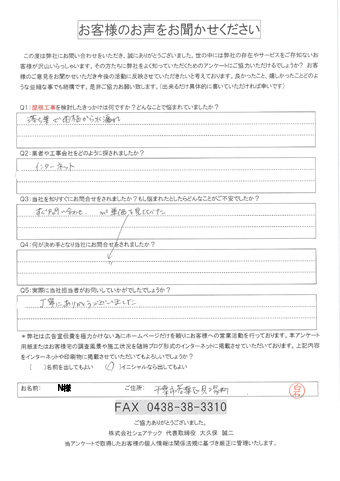 お客様のお声をお聞かせください
この度は弊社にお問い合わせをいただき、誠にありがとうございました。世の中には弊社の存在やサービスをご存知ないお
客様が沢山いらっしゃいます。その方たちに弊社をよく知っていただくためのアンケートにご協力いただけるでしょうか? お客
様のご意見をお聞かせいただき今後の活動に反映させていただきたいと考えております。良かったこと、嬉しかったことどのよ
うな些細な事でも結構です。是非ご協力お願い致します。(出来るだけ具体的に書いていただければ幸いです)
Q1:屋根工事を検討したきっかけは何ですか?どんなことで悩まれていましたか?
落ち葉で雨樋から水漏れ
Q2:業者や工事会社をどのように探されましたか?
インターネット
Q3:当社を知りすぐにお問合せをされましたか?もし悩まれたとしたらどんなことがご不安でしたか?
すぐ問い合わせ
Q4:何が決め手となり当社にお問合せをされましたか?
Q5:実際に当社担当者がお伺いしていかがでしたでしょうか?
丁寧にありがとうございました
*弊社は広告宣伝費を極力かけない為にホームページだけを頼りにお客様への営業活動を行っております。本アンケート
用紙またはお客様宅の調査風景や施工状況を随時ブログ形式のインターネットに掲載させていただいております。上記内容
をインターネットや印刷物に掲載させていただいてもよろしいでしょうか?
( )名前を出してもよい (○)イニシャルなら出してもよい
お名前: N様 ご住所: 千葉市若葉区貝塚町
FAX 0438-38-3310
ご協力ありがとうございました。
株式会社シェアテック 代表取締役 大久保 誠二
当アンケートで取得したお客様の個人情報は関係法規に基づき厳正に管理いたします。